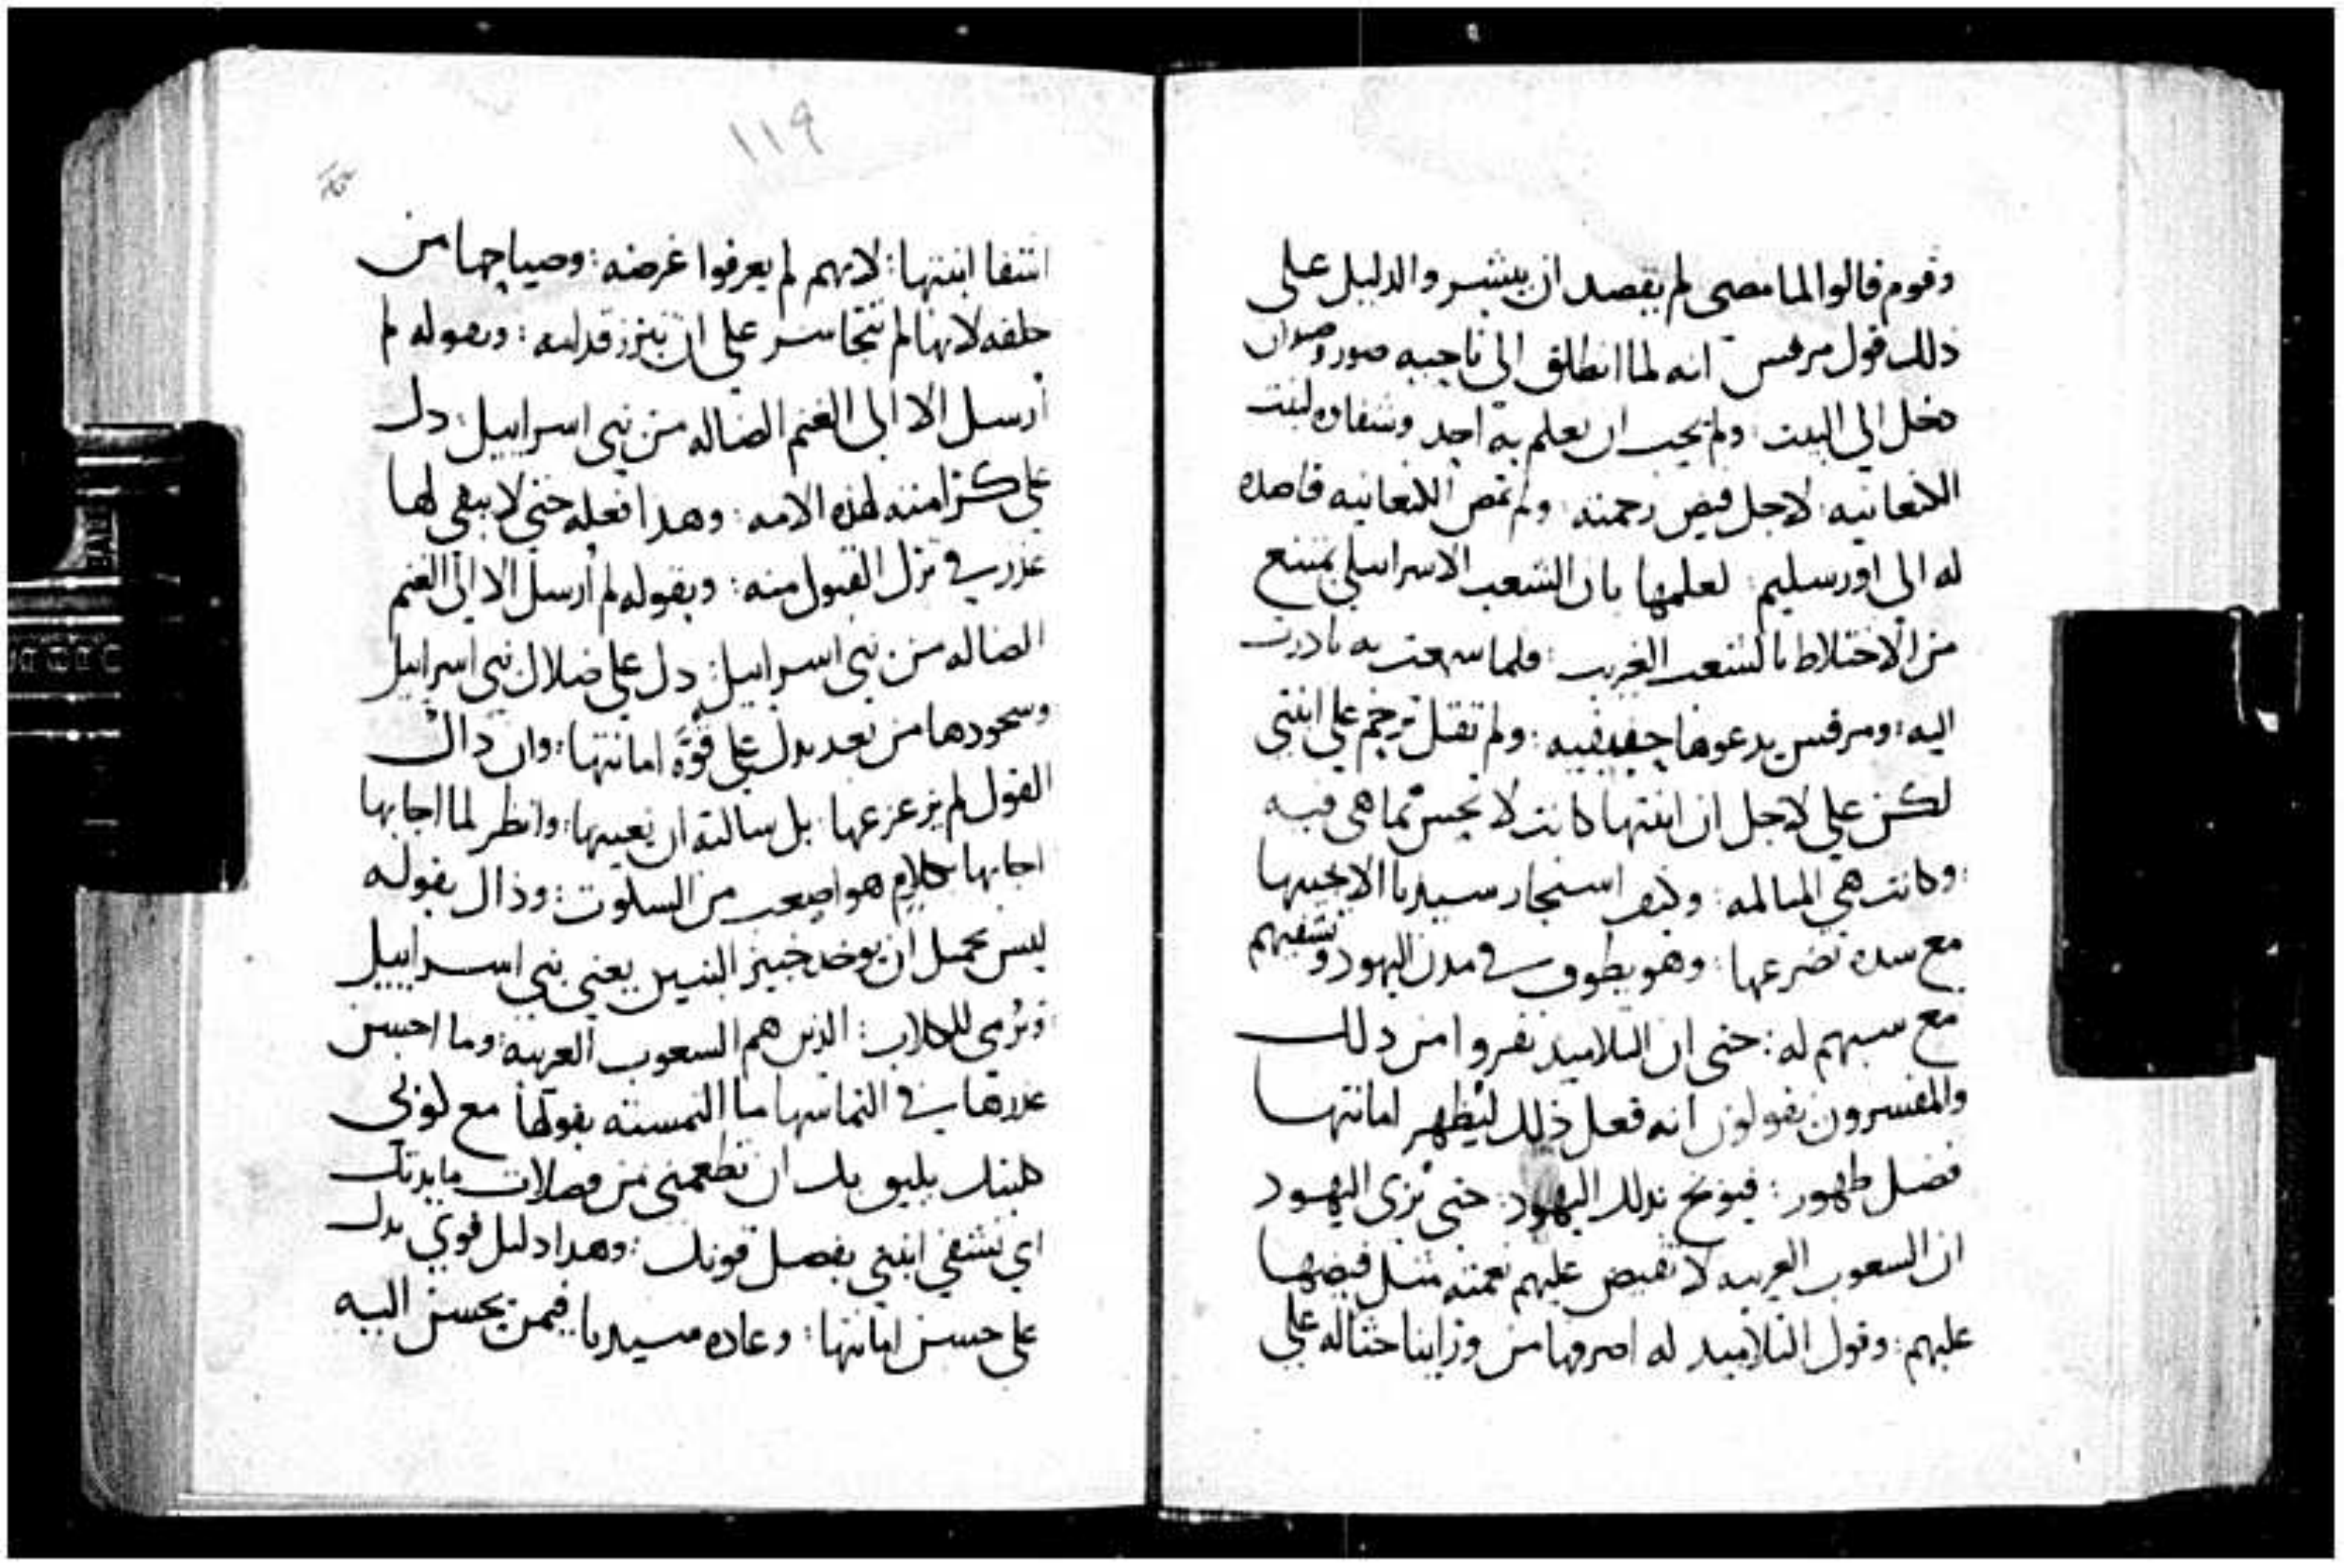 وقوم قالوا لما مضى لم يقصد ان يبشر والدليل على
ذلك قول مرقس انه لما انطلق الى ناحيه صور وصيدان
دخل الى البيت ولم يحب ان يعلم به احد وشفاوه لبنت
الكنعانيه لاجل فيض رحمته ولم تمض الكنعانيه قاصده
له الى اورسليم لعلمها بان الشعب الاسراييلي يمتنع
من الاختلاط بالشعب الغريب فلما سمعت به بادرت
اليه ومرقس يدعوها ولم تقل ترحم على ابنتي
لكن علي لاجل ان ابنتها كانت لا تحس بما هي فيه
وكانت هي المتالمه وكيف استجار سيدنا الا يجيبها
مع شده تضرعها وهو يطوف في مدن اليهود ويشفيهم
مع سبهم له حتى ان التلاميذ نفروا من ذلك
والمفسرون يقولون انه فعل ذلك ليظهر امانتها
فضل ظهور فيوبخ بذلك اليهود حتى ترى اليهود
ان الشعوب الغريبه لا تفيض عليهم نعمته مثل فيضها
عليهم وقول التلاميذ له اصرفها من وراينا حثا له على
١١٩
اشفا ابنتها لانهم لم يعرفوا غرضه وصياحها من
خلفه لانها لم تتجاسر على ان تبرز قدامه وبقوله لم
أرسل الا الى الغنم الضاله من بني اسراييل دل
على كثرة منته لهذه الامه وهذا فعله حتى لا يبقى لها
عذر في ترك القبول منه وبقوله لم أرسل الا الى الغنم
الضاله من بني اسراييل دل على ضلال بني اسراييل
وسجودها من بعد يدل على قوة امانتها وان ذاك
القول لم يزعزعها بل سالته ان يعينها وانظر لما اجابها
اجابها بكلام هو اصعب من السكوت وذاك بقوله
ليس بجميل ان يوخد خبز البنين يعني بني اسراييل
ويرمى للكلاب الذين هم الشعوب الغريبه وما احسن
عذرها في التماسها ما التمسته بقولها مع كوني
كلبتك يليق بك ان تطعمني من فضلات مايدتك
اي تشفي ابنتي بفضل قوتك وهذا دليل قوي يدل
على حسن امانتها وعاده سيدنا فيمن يحسن اليه